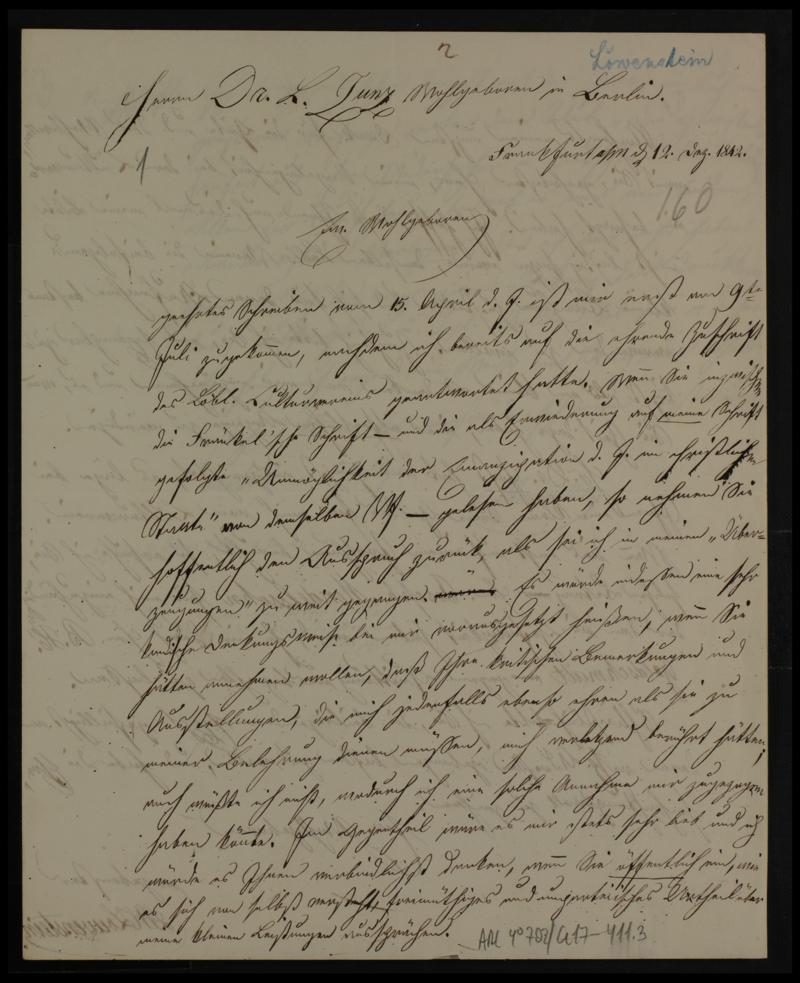 2
Löwenstein
Herrn Dr. L. Zunz Wohlgeboren in Berlin.
1
Frankfurt a/M d 12. Dez. 1842.
160
Ew. Wohlgeboren
geehrtes Schreiben vom 15. April d. J. ist mir erst am 9te
Juli zugekommen, nachdem ich bereits auf die ehrende Zuschrift
des Löbl. Culturvereins geantwortet hatte. Wenn Sie inzwischen
die Fränkel'sche Schrift — und die als Erwiederung auf meine Schrift
gefolgte „Unmöglichkeit der Emanzipation d. J. im christlichen
Staate" von demselben Vf. — gelesen haben, so nehmen Sie
hoffentlich den Ausspruch zurück, als sei ich in meinen „Über=
zeugungen" zu weit gegangen. Es würde indessen eine sehr
kindische Denkungsweise bei mir vorausgesetzt heißen, wenn Sie
hätten annehmen wollen, daß Ihre kritischen Bemerkungen und
Ausstellungen, die mich jedenfalls ebenso ehren als sie zu
meiner Belehrung dienen müssen, mich verletzend berührt hätten;
auch wüßte ich nicht, wodurch ich eine solche Annahme mir zugezogen
haben könte. Im Gegentheil wäre es mir stets sehr lieb und ich
würde es Ihnen verbindlichst danken, wenn Sie öffentlich ein, wie
es sich von selbst versteht, freimüthiges und unparteiisches Urtheil über
meine kleinen Leistungen aussprächen.
ARC 4° 792/G17-411.3